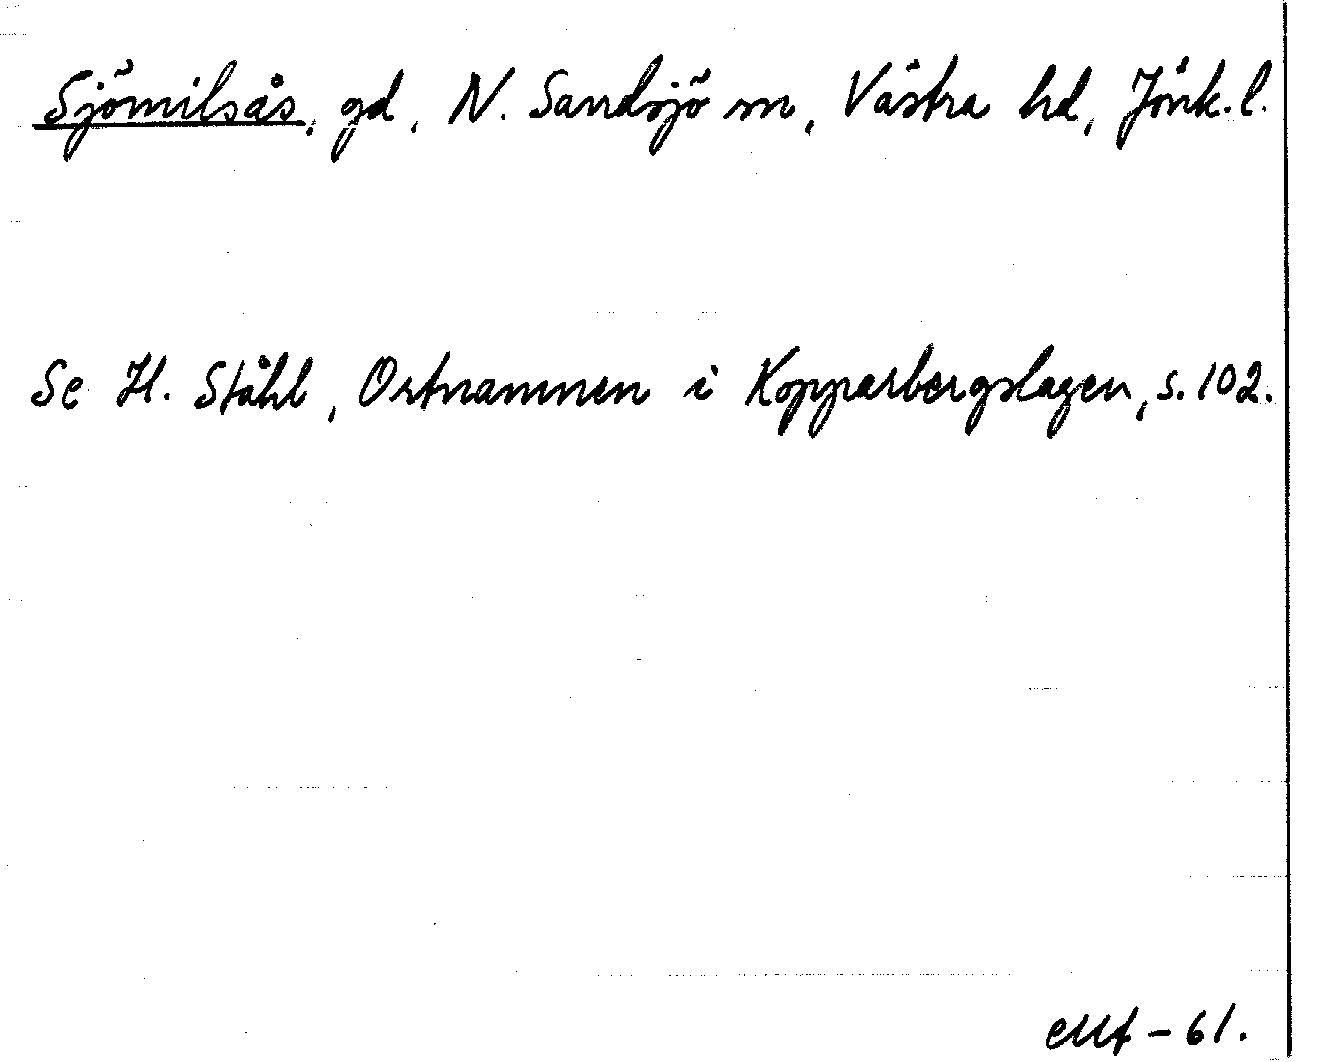 Sjömilsås, gd, N. Sandsjö sn, Västra hd, Jönk. l.
Se H. Ståhl, Ortnamnen i Kopparbergslagen, s. 102.
- 61.